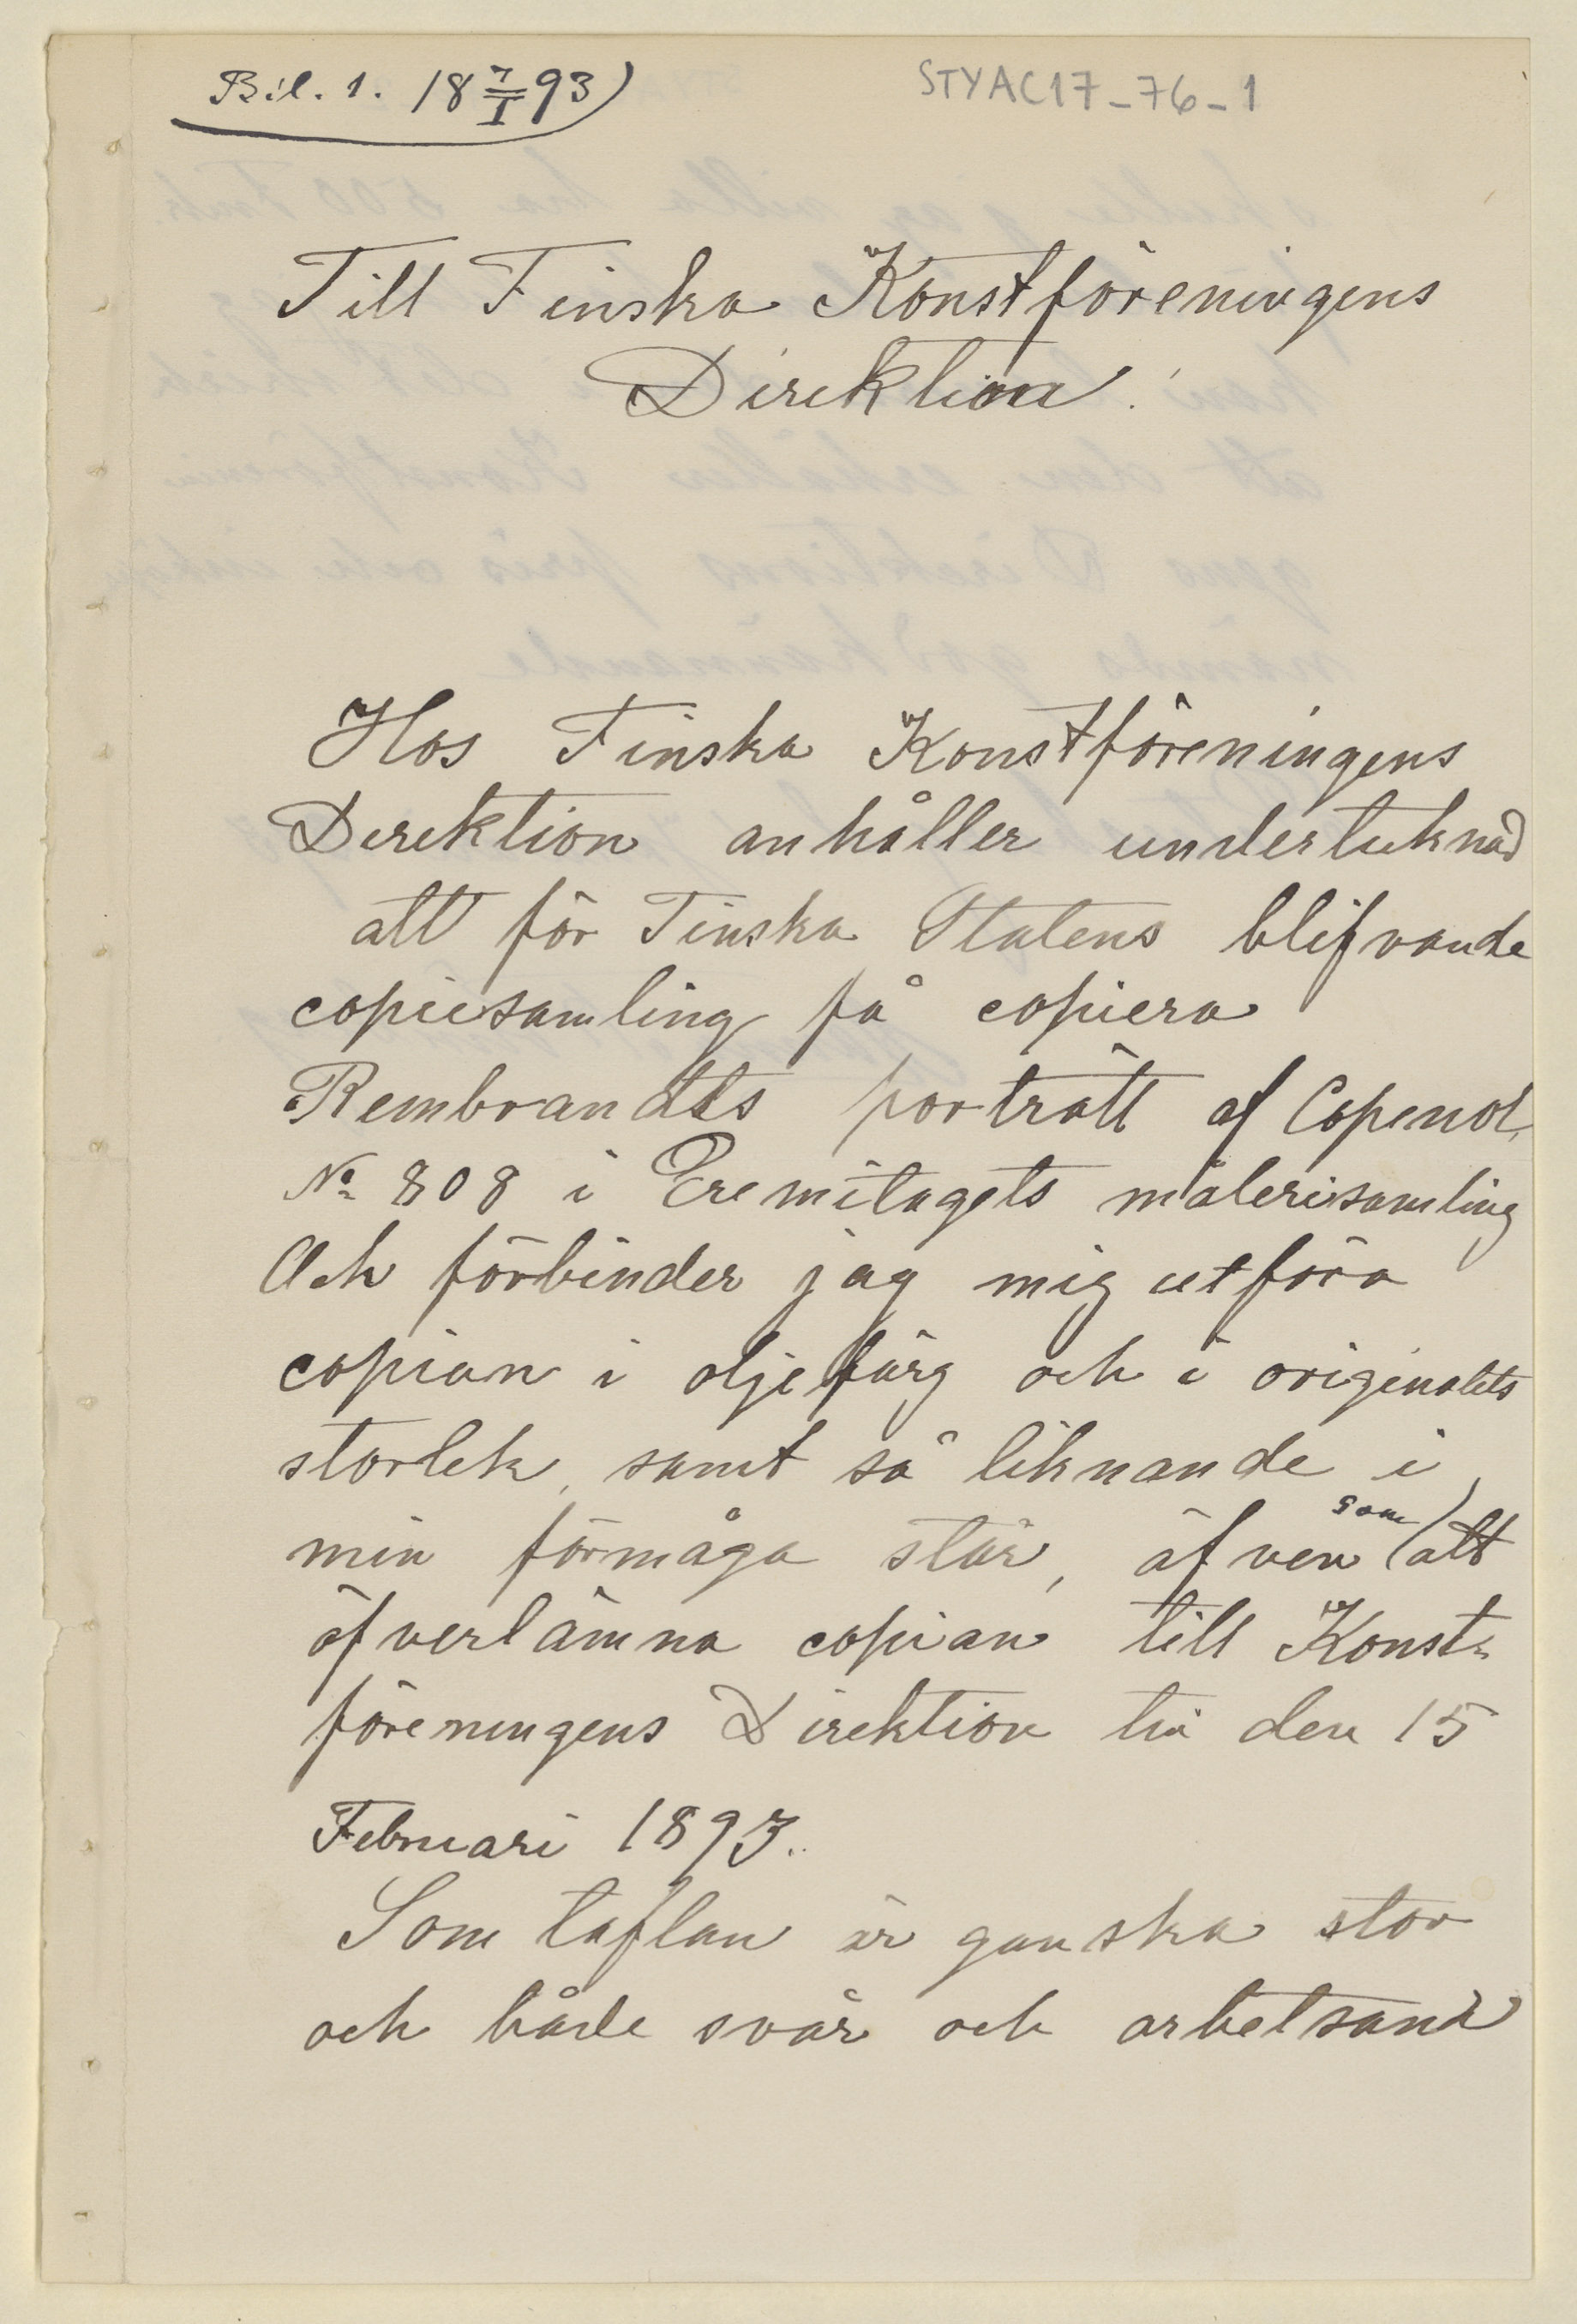 Bil. 1. 18 7/I 93)
STYAC17-76-1
Till Finska Konstföreningens
Direktion!
Hos Finska Konstföreningens
Direktion anhåller underteknad
att för Finska Statens blifvande
copiesamling få copiera
Rembrandts porträtt af Copenol,
No 808 i Eremitagets målerisamling
Och förbinder jag mig utföra
copian i oljefärg och i originalets
storlek, samt så liknande i
min förmåga står, äfven som att
öfverlämna copian till Konst=
föreningens Direktion till den 15
Februari 1893.
Som taflan är ganska stor
och både svår och arbetsam